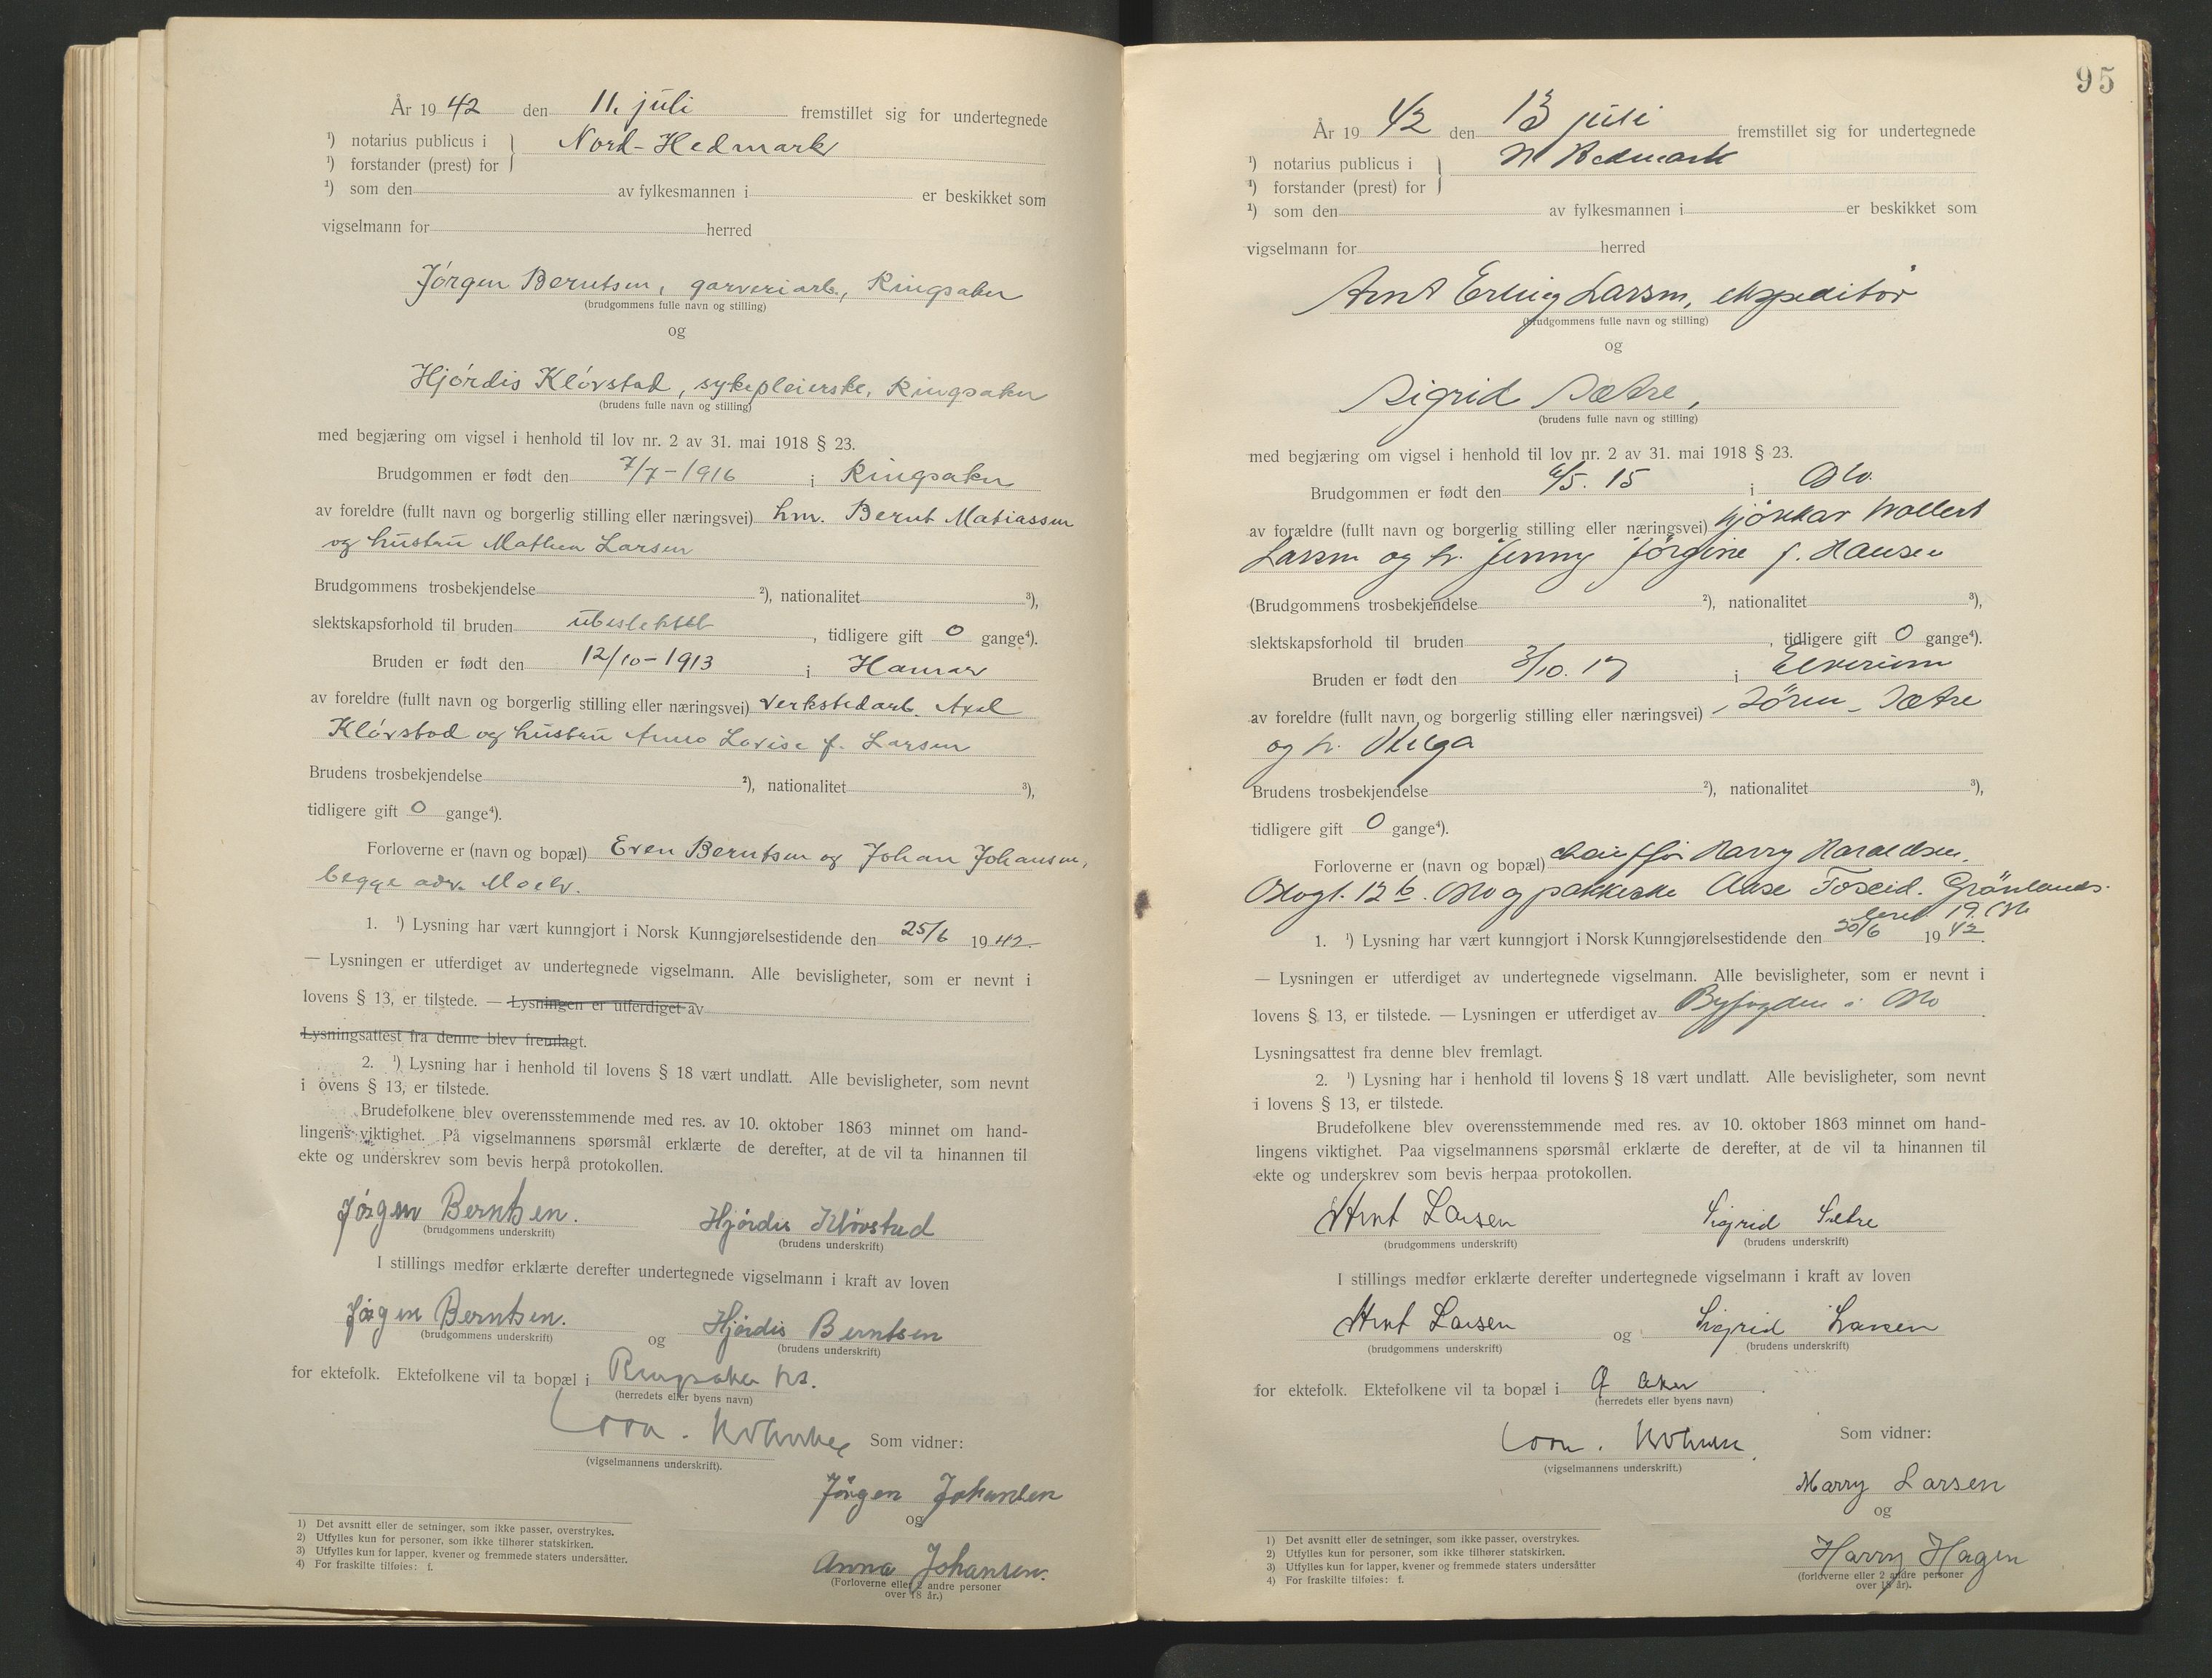 År 1942 den 11. juli fremstillet sig for undertegnede
¹) notarius publicus i } Nord-Hedmark
¹) forstander (prest) for
¹) som den av fylkesmannen i er beskikket som
vigselmann for herred
Jørgen Berntsen, garveriarb., Ringsaker
(brudgommens fulle navn og stilling)
og
Hjørdis Kløvstad, sykepleierske, Ringsaker
(brudens fulle navn og stilling)
med begjæring om vigsel i henhold til lov nr. 2 av 31. mai 1918 § 23.
Brudgommen er født den 7/7-1916 i Ringsaker
av foreldre (fullt navn og borgerlig stilling eller næringsvei) hm. Bernt Matiassen
og hustru Mathea Larsen
Brudgommens trosbekjendelse ²), nationalitet ³),
slektskapsforhold til bruden ubeslektet, tidligere gift 0 gange⁴).
Bruden er født den 12/10-1913 i Hamar
av foreldre (fullt navn og borgerlig stilling eller næringsvei) verkstedarb. Axel
Kløvstad og hustru Anna Lovise f. Larsen
Brudens trosbekjendelse ²), nationalitet ³),
tidligere gift 0 gange⁴).
Forloverne er (navn og bopæl) Even Berntsen og Johan Johansen,
begge adr. Moelv.
1. ¹) Lysning har vært kunngjort i Norsk Kunngjørelsestidende den 25/6 1942.
— Lysningen er utferdiget av undertegnede vigselmann. Alle bevisligheter, som er nevnt i
lovens § 13, er tilstede. — Lysningen er utferdiget av
Lysningsattest fra denne blev fremlagt.
2. ¹) Lysning har i henhold til lovens § 18 vært undlatt. Alle bevisligheter, som nevnt
i ovens § 13, er tilstede.
Brudefolkene blev overensstemmende med res. av 10. oktober 1863 minnet om hand-
lingens viktighet. På vigselmannens spørsmål erklærte de derefter, at de vil ta hinannen til
ekte og underskrev som bevis herpå protokollen.
Jørgen Berntsen. Hjørdis Kløvstad
(brudgommens underskrift) (brudens underskrift)
I stillings medfør erklærte derefter undertegnede vigselmann i kraft av loven
Jørgen Berntsen. og Hjørdis Berntsen
(brudgommens underskrift) (brudens underskrift)
for ektefolk. Ektefolkene vil ta bopæl i Ringsaker hd.
(herredets eller byens navn)
Som vidner:
(vigselmannens underskrift).
Jørgen Johansen
og
Anna Johansen.
(Forloverne eller 2 andre personer
over 18 år.)
1) Det avsnitt eller de setninger, som ikke passer, overstrykes.
2) Utfylles kun for personer, som ikke tilhører statskirken.
3) Utfylles kun for lapper, kvener og fremmede staters undersåtter.
4) For fraskilte tilføies: f.
95
År 1942 den 13 juli fremstillet sig for undertegnede
¹) notarius publicus i } N Hedmark
¹) forstander (prest) for
¹) som den av fylkesmannen i er beskikket som
vigselmann for herred
Arnt Erling Larsen, ekspeditør
(brudgommens fulle navn og stilling)
og
Sigrid Sætre,
(brudens fulle navn og stilling)
med begjæring om vigsel i henhold til lov nr. 2 av 31. mai 1918 § 23.
Brudgommen er født den 6/5. 15 i Oslo
av forældre (fullt navn og borgerlig stilling eller næringsvei) Wollert
Larsen og h. Jenny Jørgine f. Hansen
(Brudgommens trosbekjendelse ²), nationalitet ³),
slektskapsforhold til bruden , tidligere gift 0 gange⁴).
Bruden er født den 3/10. 17 i Elverum
av foreldre (fullt navn og borgerlig stilling eller næringsvei) Søren Sætre
og h. Helga
Brudens trosbekjendelse ²), nationalitet ³),
tidligere gift 0 gange⁴).
Forloverne er (navn og bopæl) chauffør Harry Haraldsen,
Oslogt. 12 b. Oslo og pakkerske Aase Foseid. Grønlands-
leret 19. Oslo
1. ¹) Lysning har vært kunngjort i Norsk Kunngjørelsestidende den 30/6 1942.
— Lysningen er utferdiget av undertegnede vigselmann. Alle bevisligheter, som er nevnt i
lovens § 13, er tilstede. — Lysningen er utferdiget av Byfogden i Oslo.
Lysningsattest fra denne blev fremlagt.
2. ¹) Lysning har i henhold til lovens § 18 vært undlatt. Alle bevisligheter, som nevnt
i lovens § 13, er tilstede.
Brudefolkene blev overensstemmende med res. av 10. oktober 1863 minnet om hand-
lingens viktighet. Paa vigselmannens spørsmål erklærte de derefter, at de vil ta hinannen til
ekte og underskrev som bevis herpaa protokollen.
Arnt Larsen Sigrid Sætre
(brudgommens underskrift) (brudens underskrift)
I stillings medfør erklærte derefter undertegnede vigselmann i kraft av loven
Arnt Larsen og Sigrid Larsen
(brudgommens underskrift) (brudens underskrift)
for ektefolk. Ektefolkene vil ta bopæl i Ø Aker.
(herredets eller byens navn)
Som vidner:
(vigselmannens underskrift.)
Marry Larsen
og
Harry Hagen
(forloverne eller 2 andre personer
over 18 år).
1) Det avsnitt eller de setninger, som ikke passer, overstrykes.
2) Utfylles kun for personer, som ikke tilhører statskirken.
3) Utfylles kun for lapper, kvener og fremmede staters undersåtter
4) For fraskilte tilføies: f.